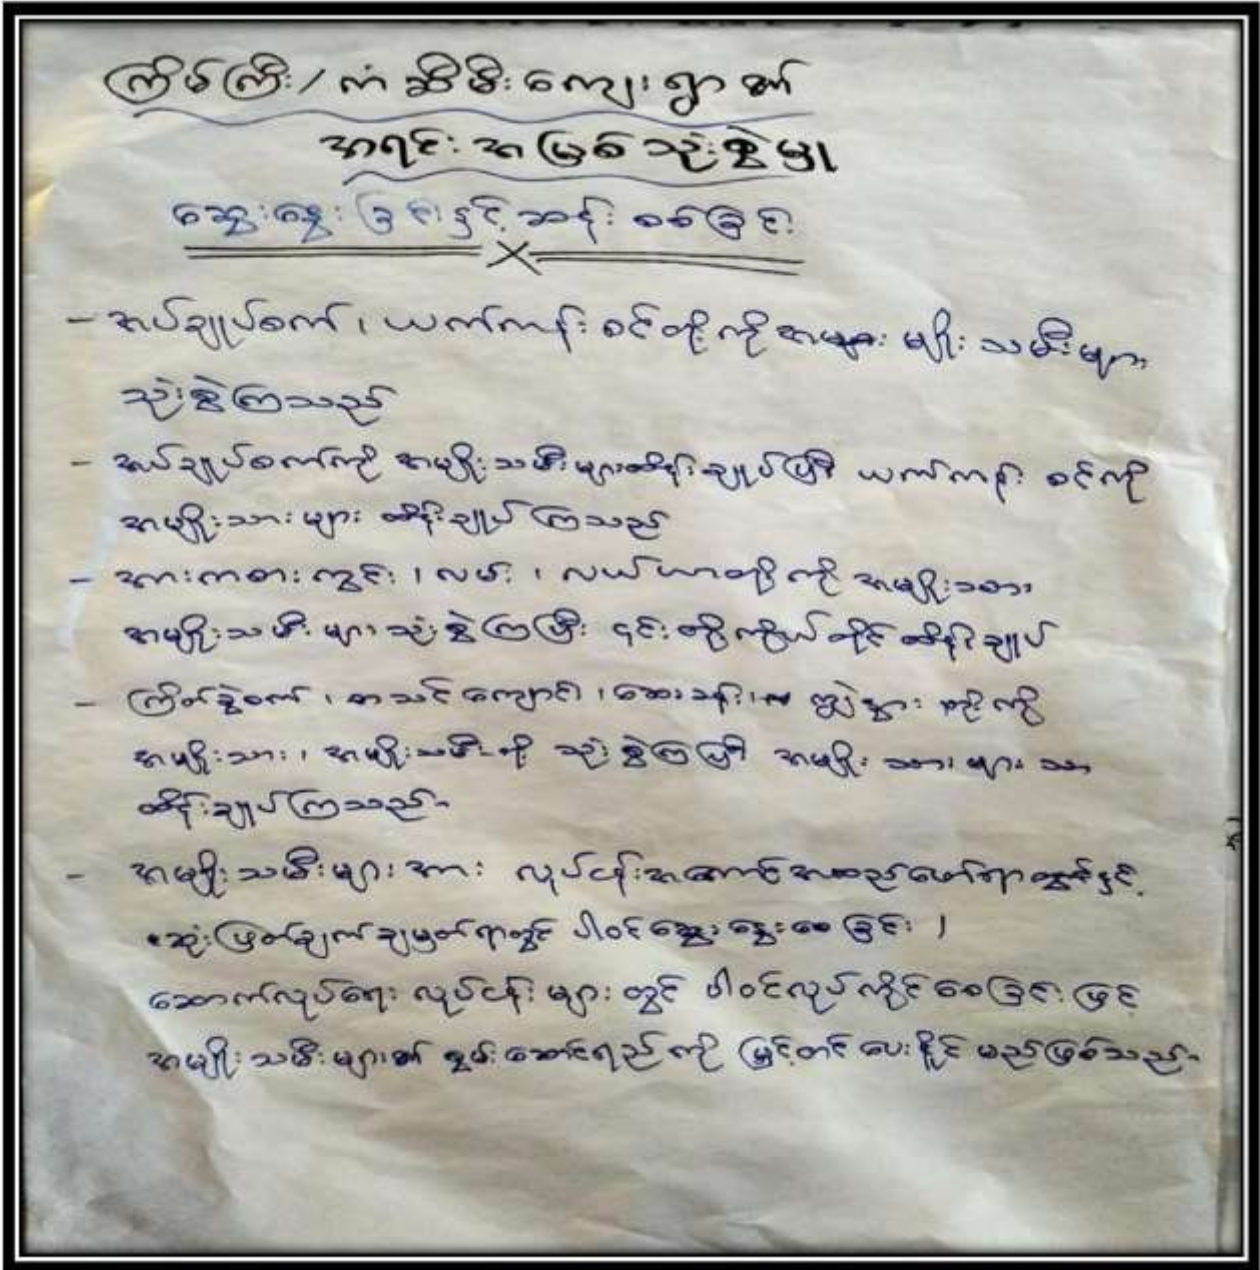 ကြိမ်ကြီး/ကံဆီမီးကျေးရွာ၏
အရင်းအမြစ်သုံးစွဲမှု
ဆွေးနွေးခြင်းနှင့်ဆန်းစစ်ခြင်း
- အပ်ချုပ်စက်၊ ယက်ကန်းစင်တို့ကို အများ မျိုးသမီးများ
သုံးစွဲကြသည်
- အပ်ချုပ်စက်ကို အမျိုးသမီးများထိန်းချုပ်ပြီး ယက်ကန်းစင်ကို
အမျိုးသားများ ထိန်းချုပ်ကြသည်
- အားကစားကွင်း၊ လမ်း၊ လယ်ယာတို့ကို အမျိုးသား၊
အမျိုးသမီးများသုံးစွဲကြပြီး ၎င်းတို့ကိုယ်တိုင်ထိန်းချုပ်
- ကြိတ်ခွဲစက်၊ စာသင်ကျောင်း၊ ဆေးခန်း၊ ကျွဲနွား တို့ကို
အမျိုးသား၊ အမျိုးသမီးတို့ သုံးစွဲကြပြီး အမျိုးသားများသာ
ထိန်းချုပ်ကြသည်။
- အမျိုးသမီးများအား လုပ်ငန်းအကောင်အထည်ဖော်ရာတွင်နှင့်
ဆုံးဖြတ်ချက်ချမှတ်ရာတွင် ပါဝင်ဆွေးနွေးစေခြင်း၊
ဆောက်လုပ်ရေးလုပ်ငန်းများတွင် ပါဝင်လုပ်ကိုင်စေခြင်းဖြင့်
အမျိုးသမီးများ၏ စွမ်းဆောင်ရည်ကို မြှင့်တင်ပေးနိုင်မည်ဖြစ်သည်။